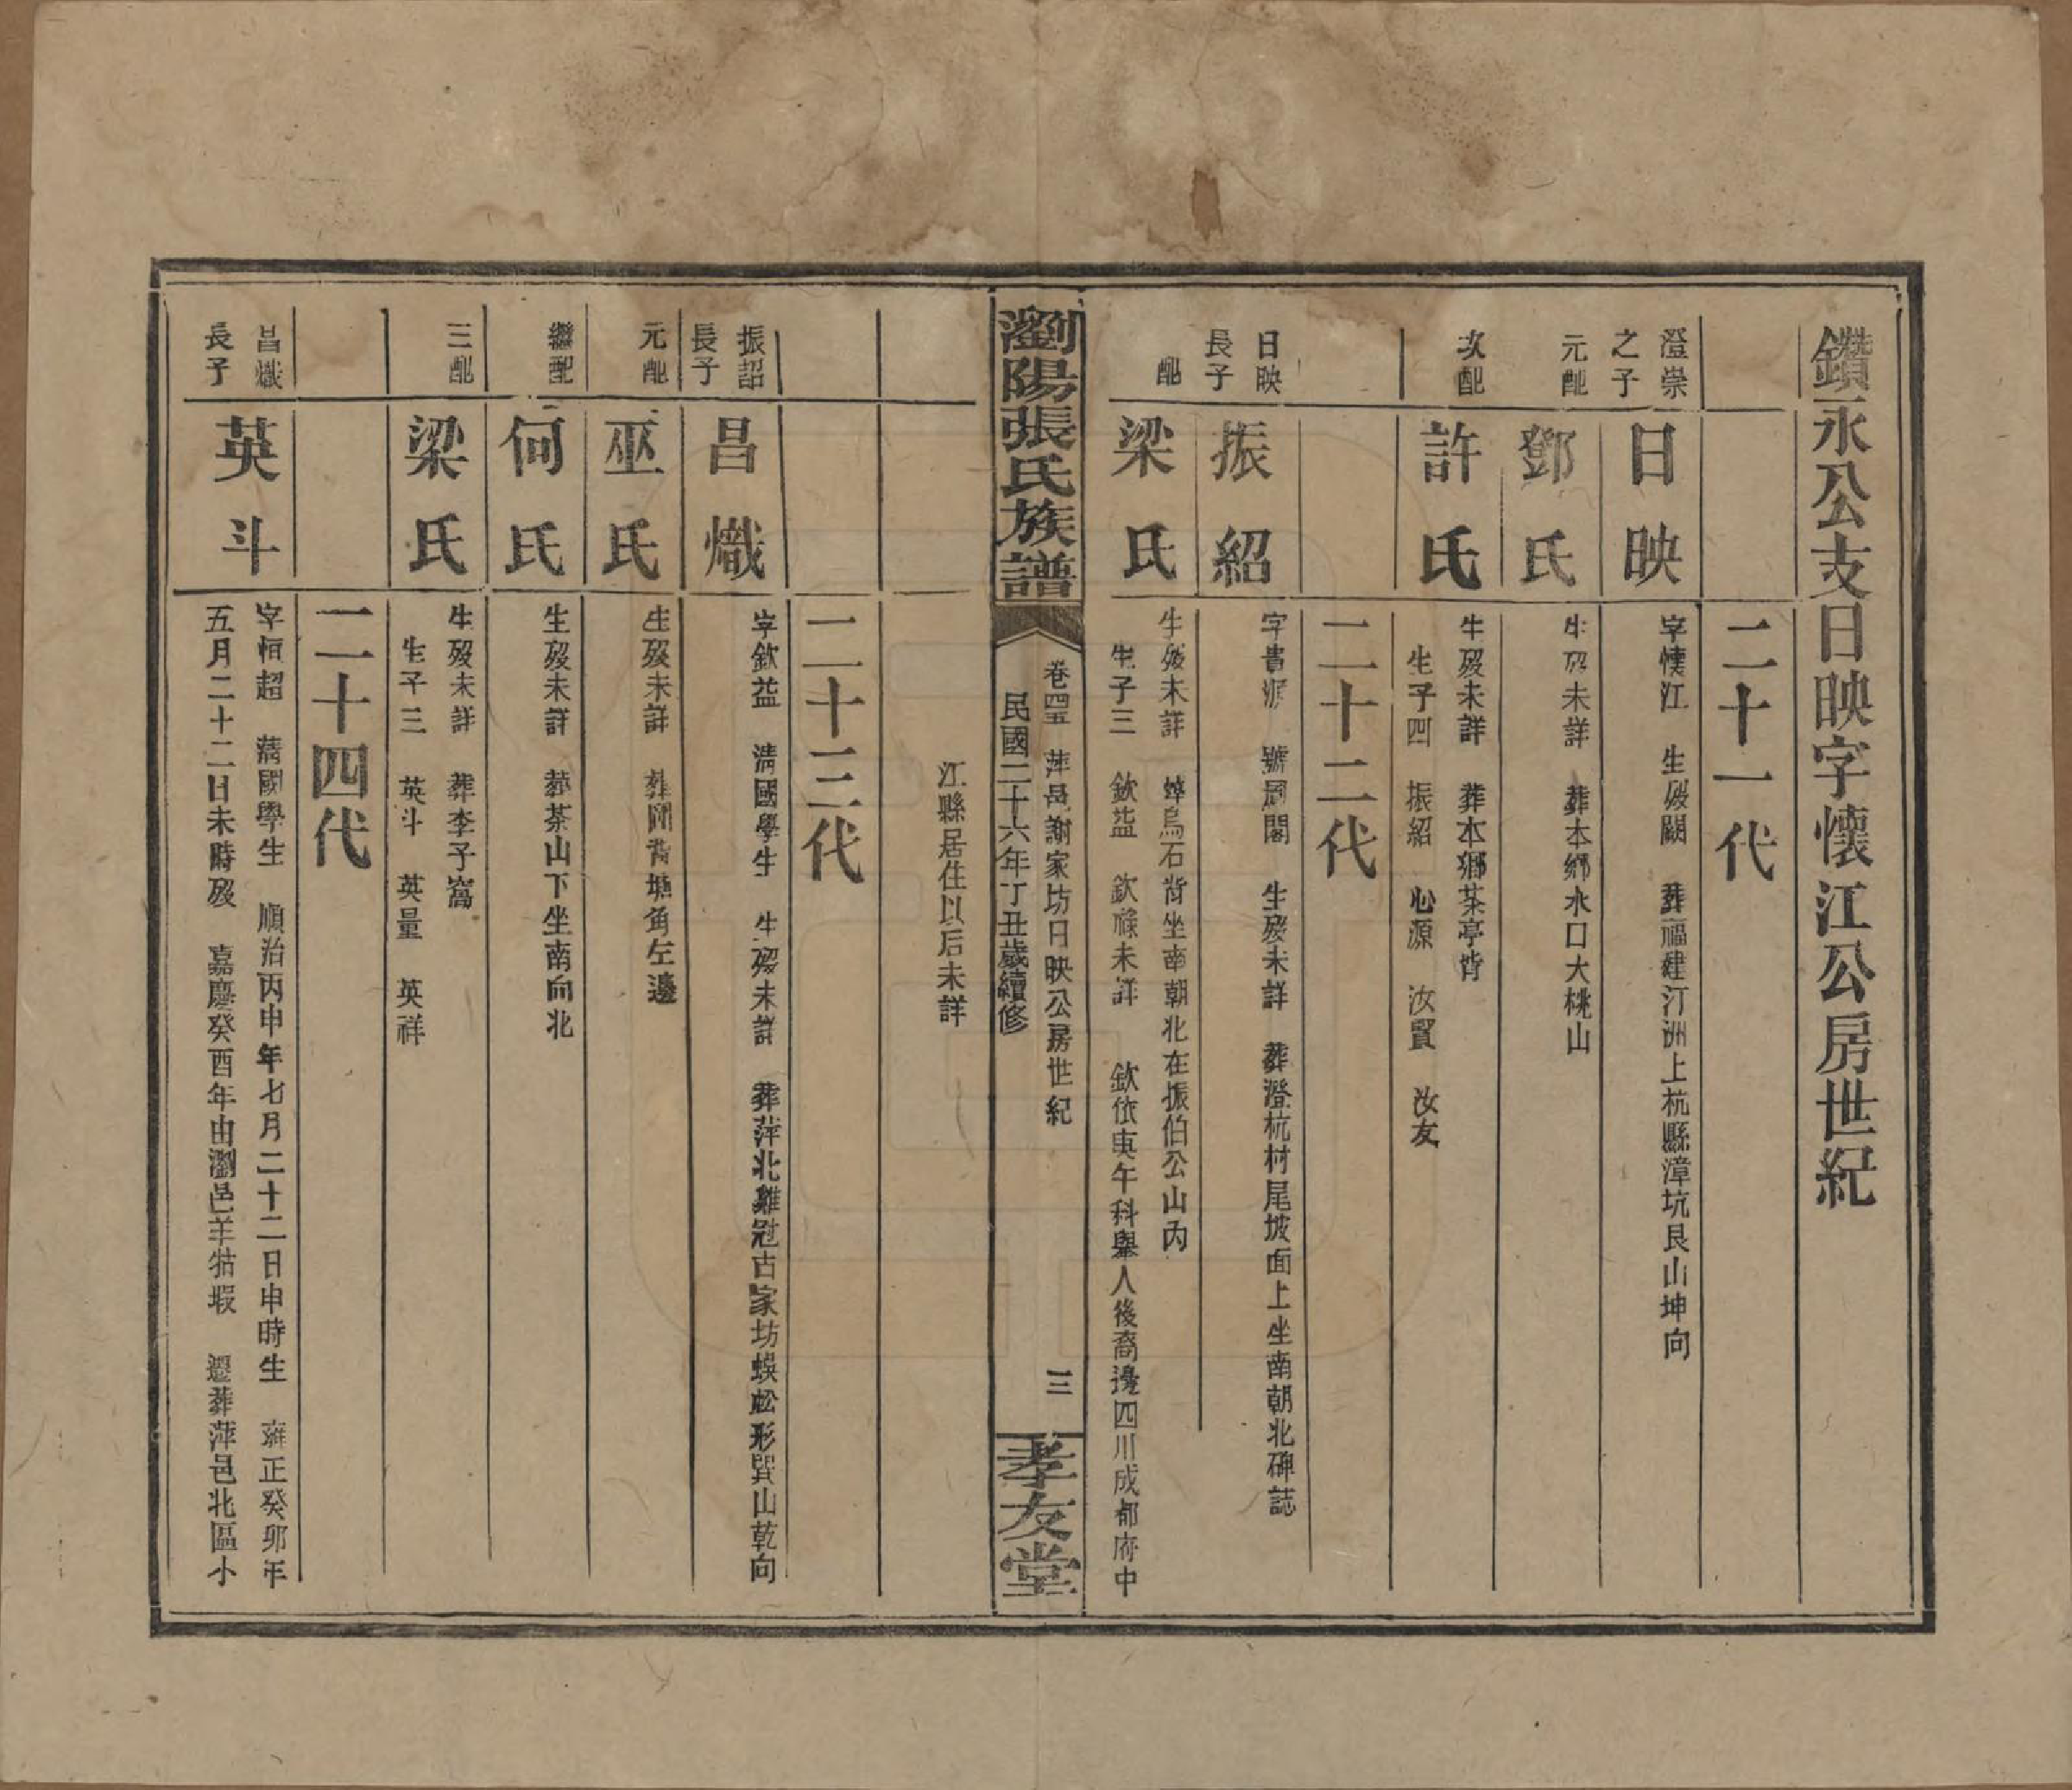 鑽永公支日映字懷江公房世紀
二十一代
澄崇之子
日映
字懷江　生歿闕　葬福建汀洲上杭縣漳坑艮山坤向
元配
鄧氏
生歿未詳　葬本鄉水口大桃山
次配
許氏
生歿未詳　葬本鄉茶亭背
生子四　振紹　心源　汝賢　汝友
二十二代
日映長子
振紹
字貴　號周閣　生歿未詳　葬澄杭村尾坡面上坐南朝北碑誌
配
梁氏
生歿未詳　葬烏石背坐南朝北在振伯公山內
生子三　欽益　欽祿未詳　欽依庚午科舉人後裔邊四川成都府中
瀏陽張氏族譜
卷四五　萍邑謝家坊日映公房世紀
民國二十六年丁丑歲續修
三
孝友堂
江縣居住以后未詳
二十三代
振詔長子
昌熾
字欽益　清國學生　生歿未詳　葬萍北雞冠古家坊蜈蚣形巽山乾向
元配
巫氏
生歿未詳　葬背塘角左邊
繼配
何氏
生歿未詳　葬茶山下坐南向北
三配
梁氏
生歿未詳　葬李子窩
生子三　英斗　英量　英祥
二十四代
昌熾長子
英斗
字恒超　清國學生　順治丙申年七月二十二日申時生　雍正癸卯年
五月二十二日未時歿　嘉慶癸酉年由瀏邑羊牯塅　遷葬萍邑北區小